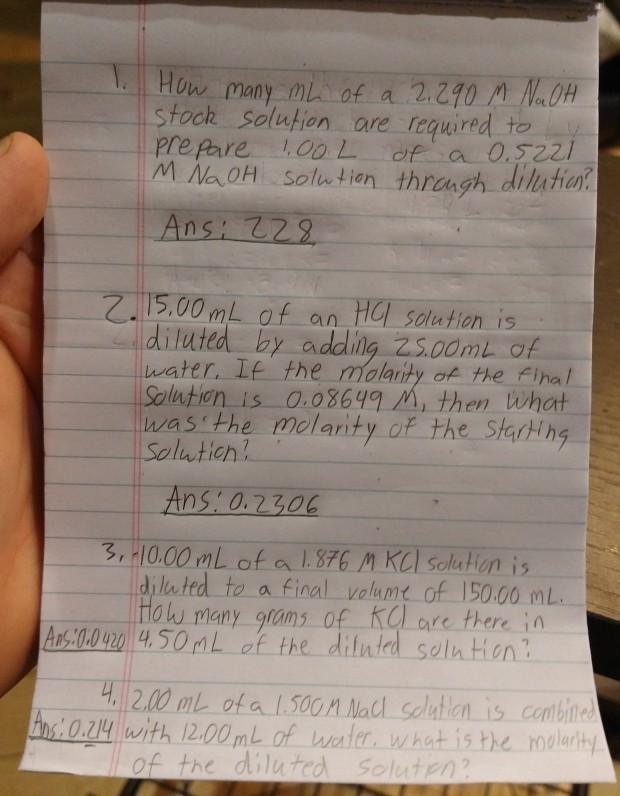 1. How many mL of a 2.290 M NaOH
stock solution are required to
prepare 1.00 L of a 0.5221
M NaOH solution through dilution?
Ans: 228
2. 15.00 mL of an HCl solution is
diluted by adding 25.00 mL of
water. If the molarity of the final
solution is 0.08649 M, then what
was the molarity of the starting
solution?
Ans: 0.2306
3. 10.00 mL of a 1.876 M KCl solution is
diluted to a final volume of 150.00 mL.
How many grams of KCl are there in
Ans: 0.0420 4.50 mL of the diluted solution?
4. 2.00 mL of a 1.500 M NaCl solution is combined
Ans: 0.214 with 12.00 mL of water. What is the molarity
of the diluted solution?